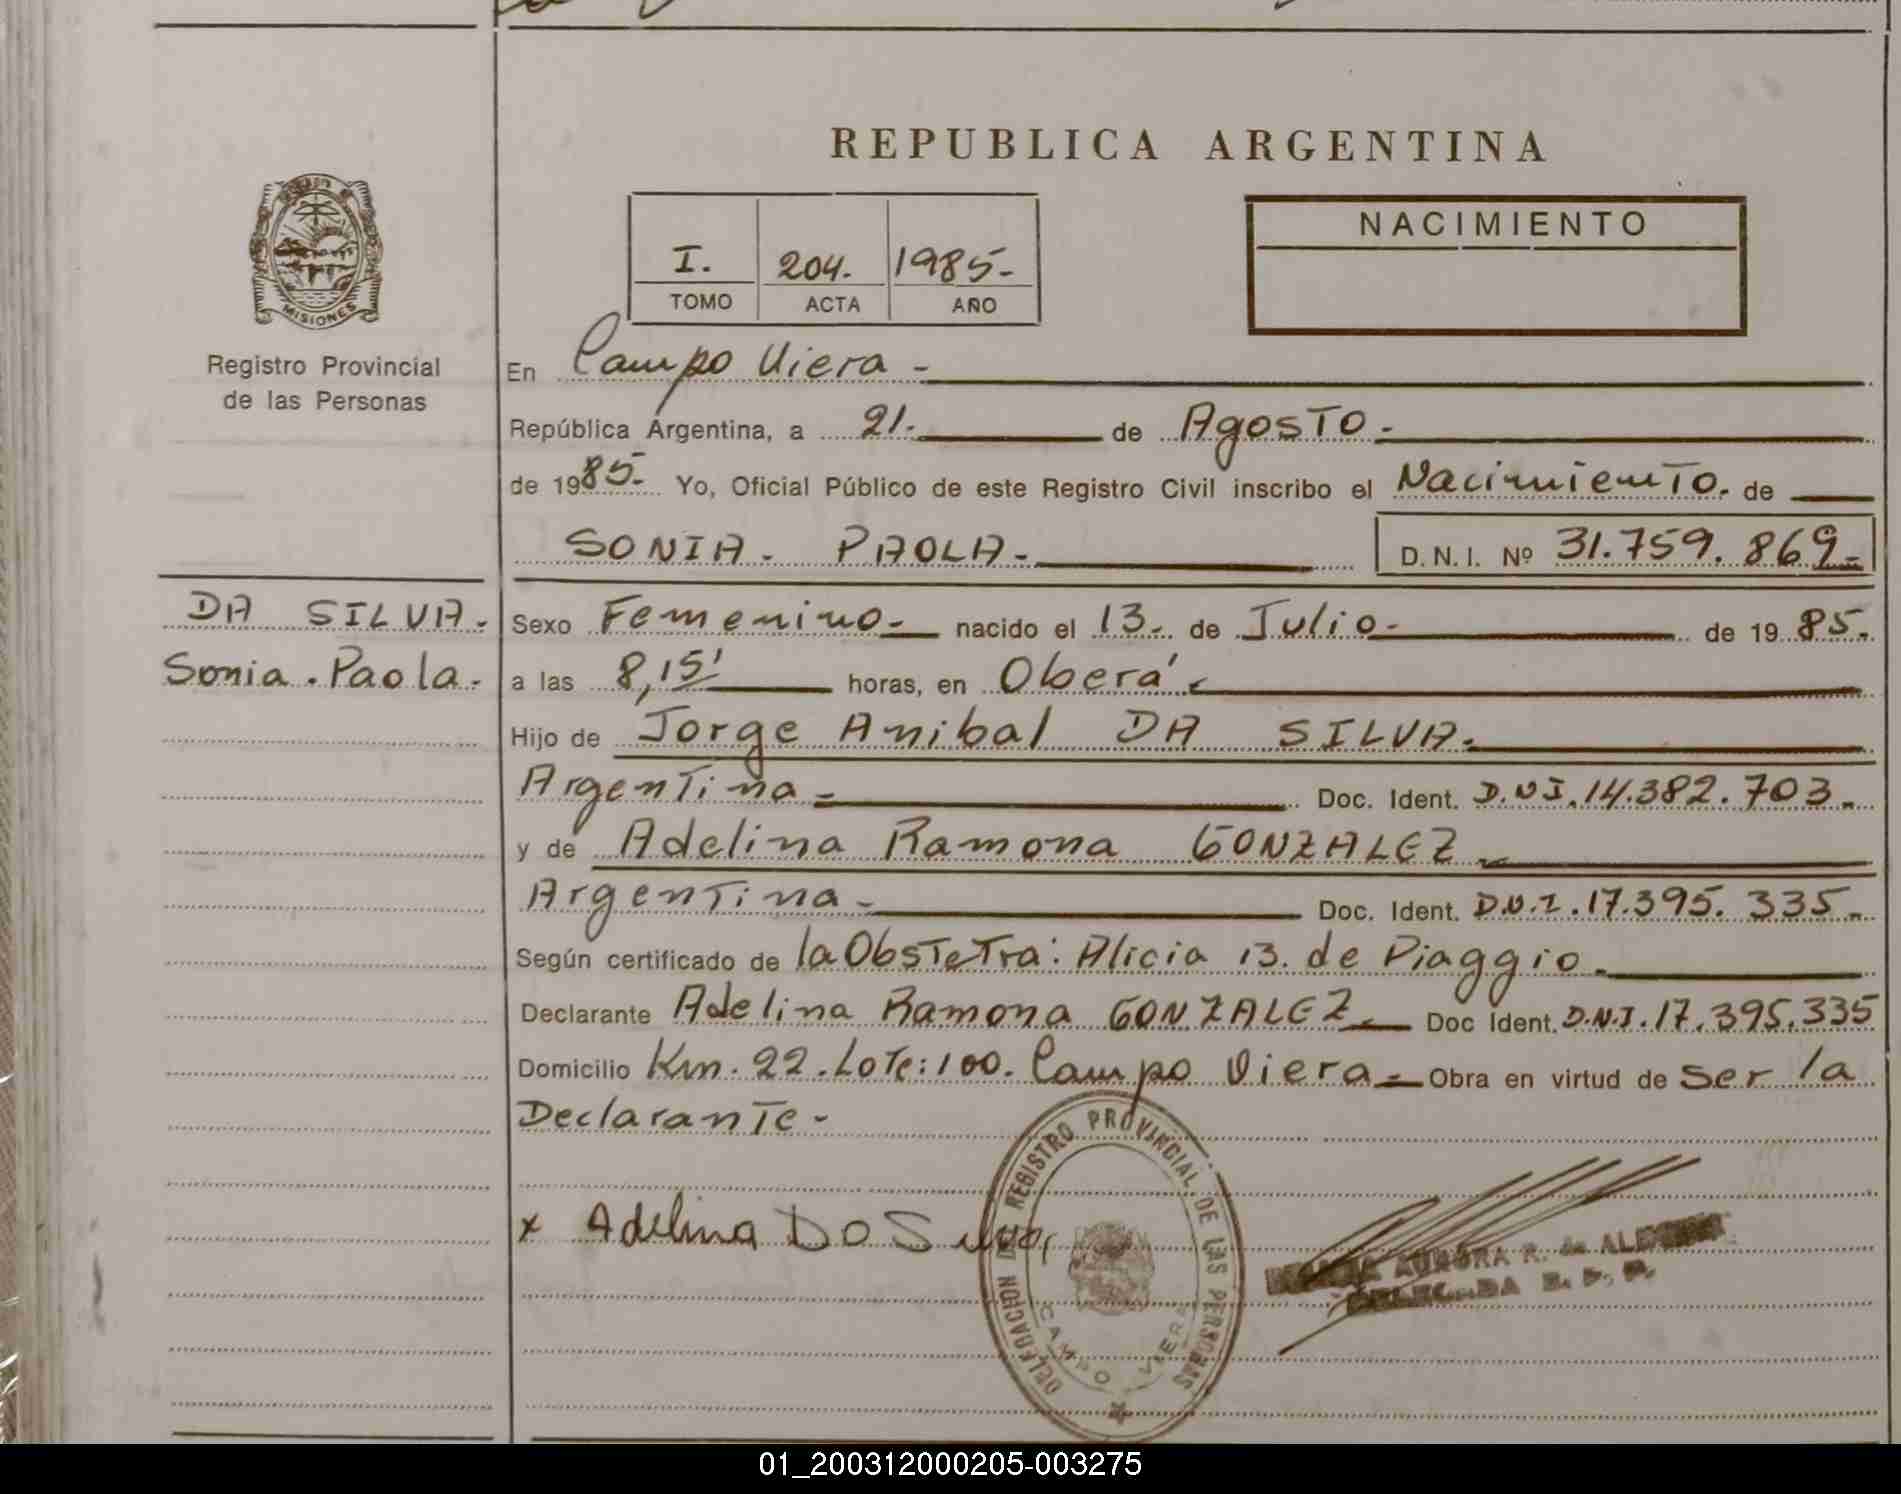 REPUBLICA ARGENTINA
MISIONES
Registro Provincial
de las Personas
I. 204. 1985-
TOMO ACTA AÑO
NACIMIENTO
En Campo Viera -
República Argentina, a 21. de Agosto.-
de 1985- Yo, Oficial Público de este Registro Civil inscribo el Nacimiento. de
SONIA. PAOLA.- D.N.I. Nº 31.759.869.-
DA SILVA.-
Sonia. Paola.-
Sexo Femenino.- nacido el 13.- de Julio.- de 1985.-
a las 8,15' horas, en Oberá.-
Hijo de Jorge Anibal DA SILVA.-
Argentina.- Doc. Ident. D.N.I. 14.382.703.-
y de Adelina Ramona GONZALEZ.-
Argentina.- Doc. Ident. D.N.I. 17.395.335.-
Según certificado de la Obstetra: Alicia B. de Piaggio.-
Declarante Adelina Ramona GONZALEZ.- Doc Ident. D.N.I. 17.395.335
Domicilio Km. 22. Lote: 100. Campo Viera.- Obra en virtud de ser la
Declarante.-
x Adelina DO
DELEGACION DE REGISTRO PROVINCIAL DE LAS PERSONAS
CAMPO VIERA
AURORA R. de
DELEGADA R. P. P.
01_200312000205-003275